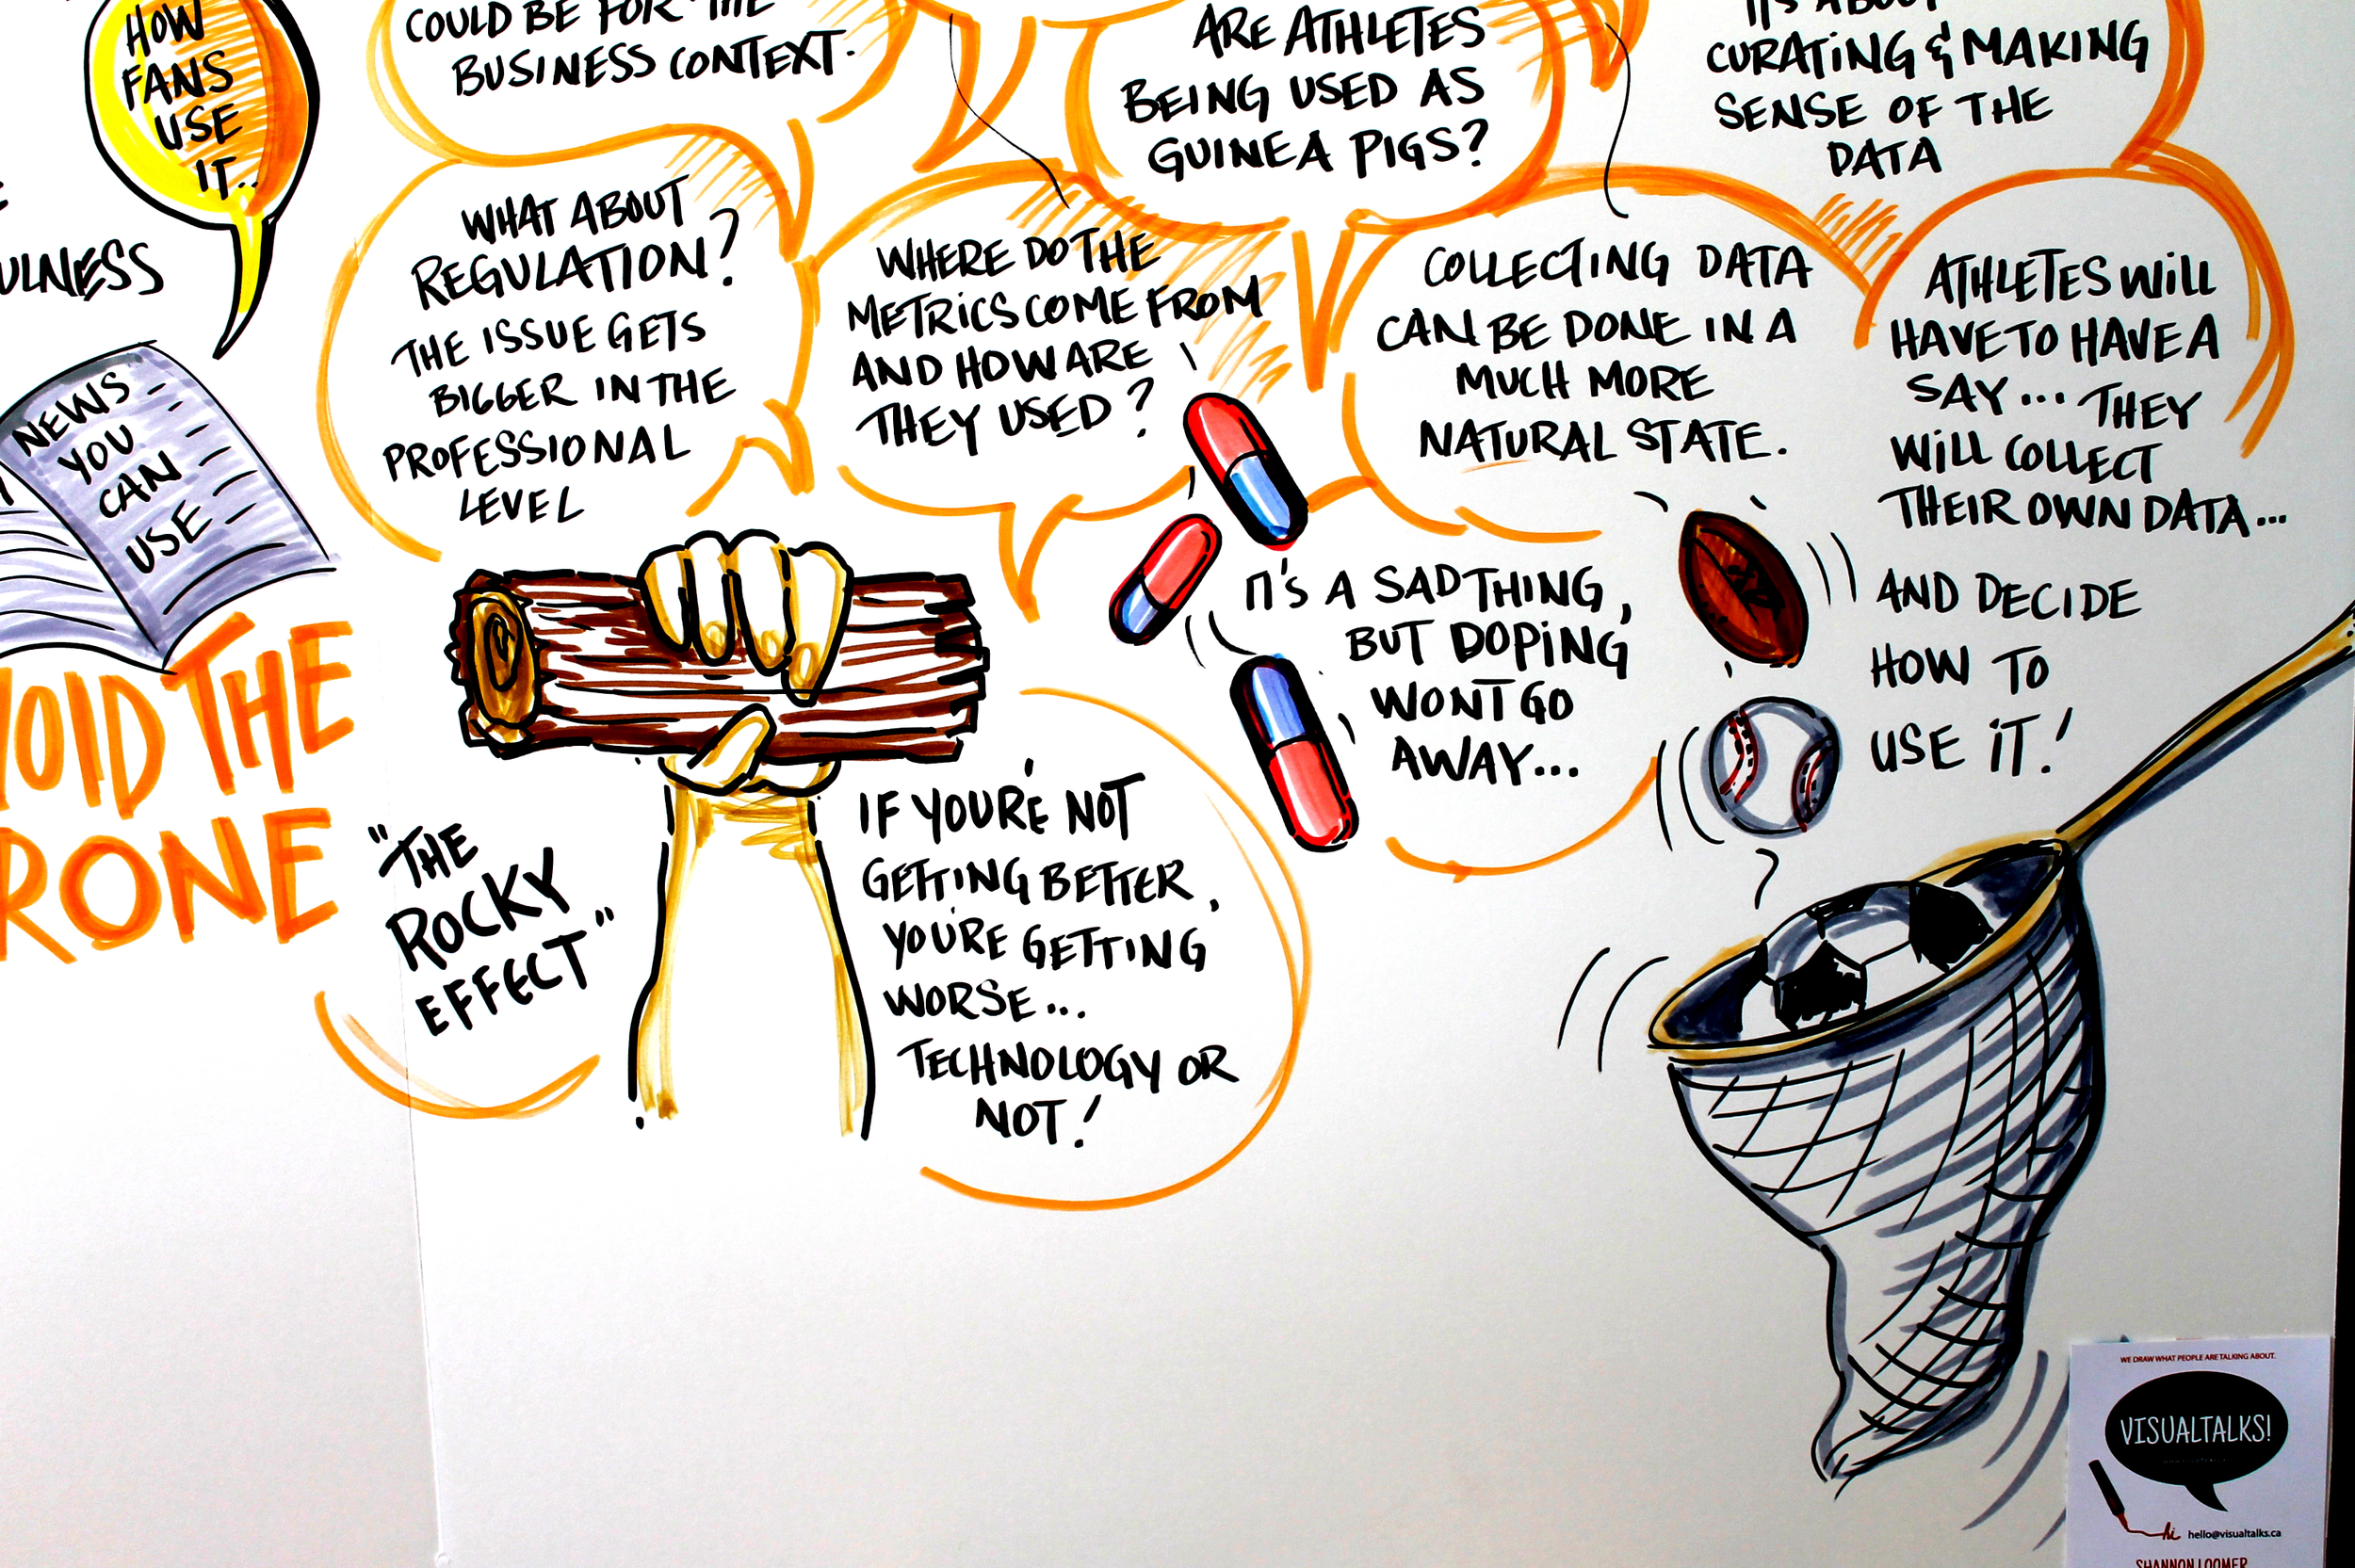 HOW
FANS
USE
IT..
ULNESS
NEWS
YOU
CAN
USE
VOID THE
RONE
COULD BE FOR THE
BUSINESS CONTEXT.
WHAT ABOUT
REGULATION?
THE ISSUE GETS
BIGGER IN THE
PROFESSIONAL
LEVEL
"THE
ROCKY
EFFECT"
ARE ATHLETES
BEING USED AS
GUINEA PIGS?
WHERE DO THE
METRICS COME FROM
AND HOW ARE
THEY USED?
IF YOU'RE NOT
GETTING BETTER,
YOU'RE GETTING
WORSE...
TECHNOLOGY OR
NOT!
IT'S ABOUT
CURATING & MAKING
SENSE OF THE
DATA
COLLECTING DATA
CAN BE DONE IN A
MUCH MORE
NATURAL STATE.
IT'S A SAD THING,
BUT DOPING
WON'T GO
AWAY...
ATHLETES WILL
HAVE TO HAVE A
SAY... THEY
WILL COLLECT
THEIR OWN DATA...
AND DECIDE
HOW TO
USE IT!
WE DRAW WHAT PEOPLE ARE TALKING ABOUT.
VISUALTALKS!
hi hello@visualtalks.ca
SHANNON LOOMER